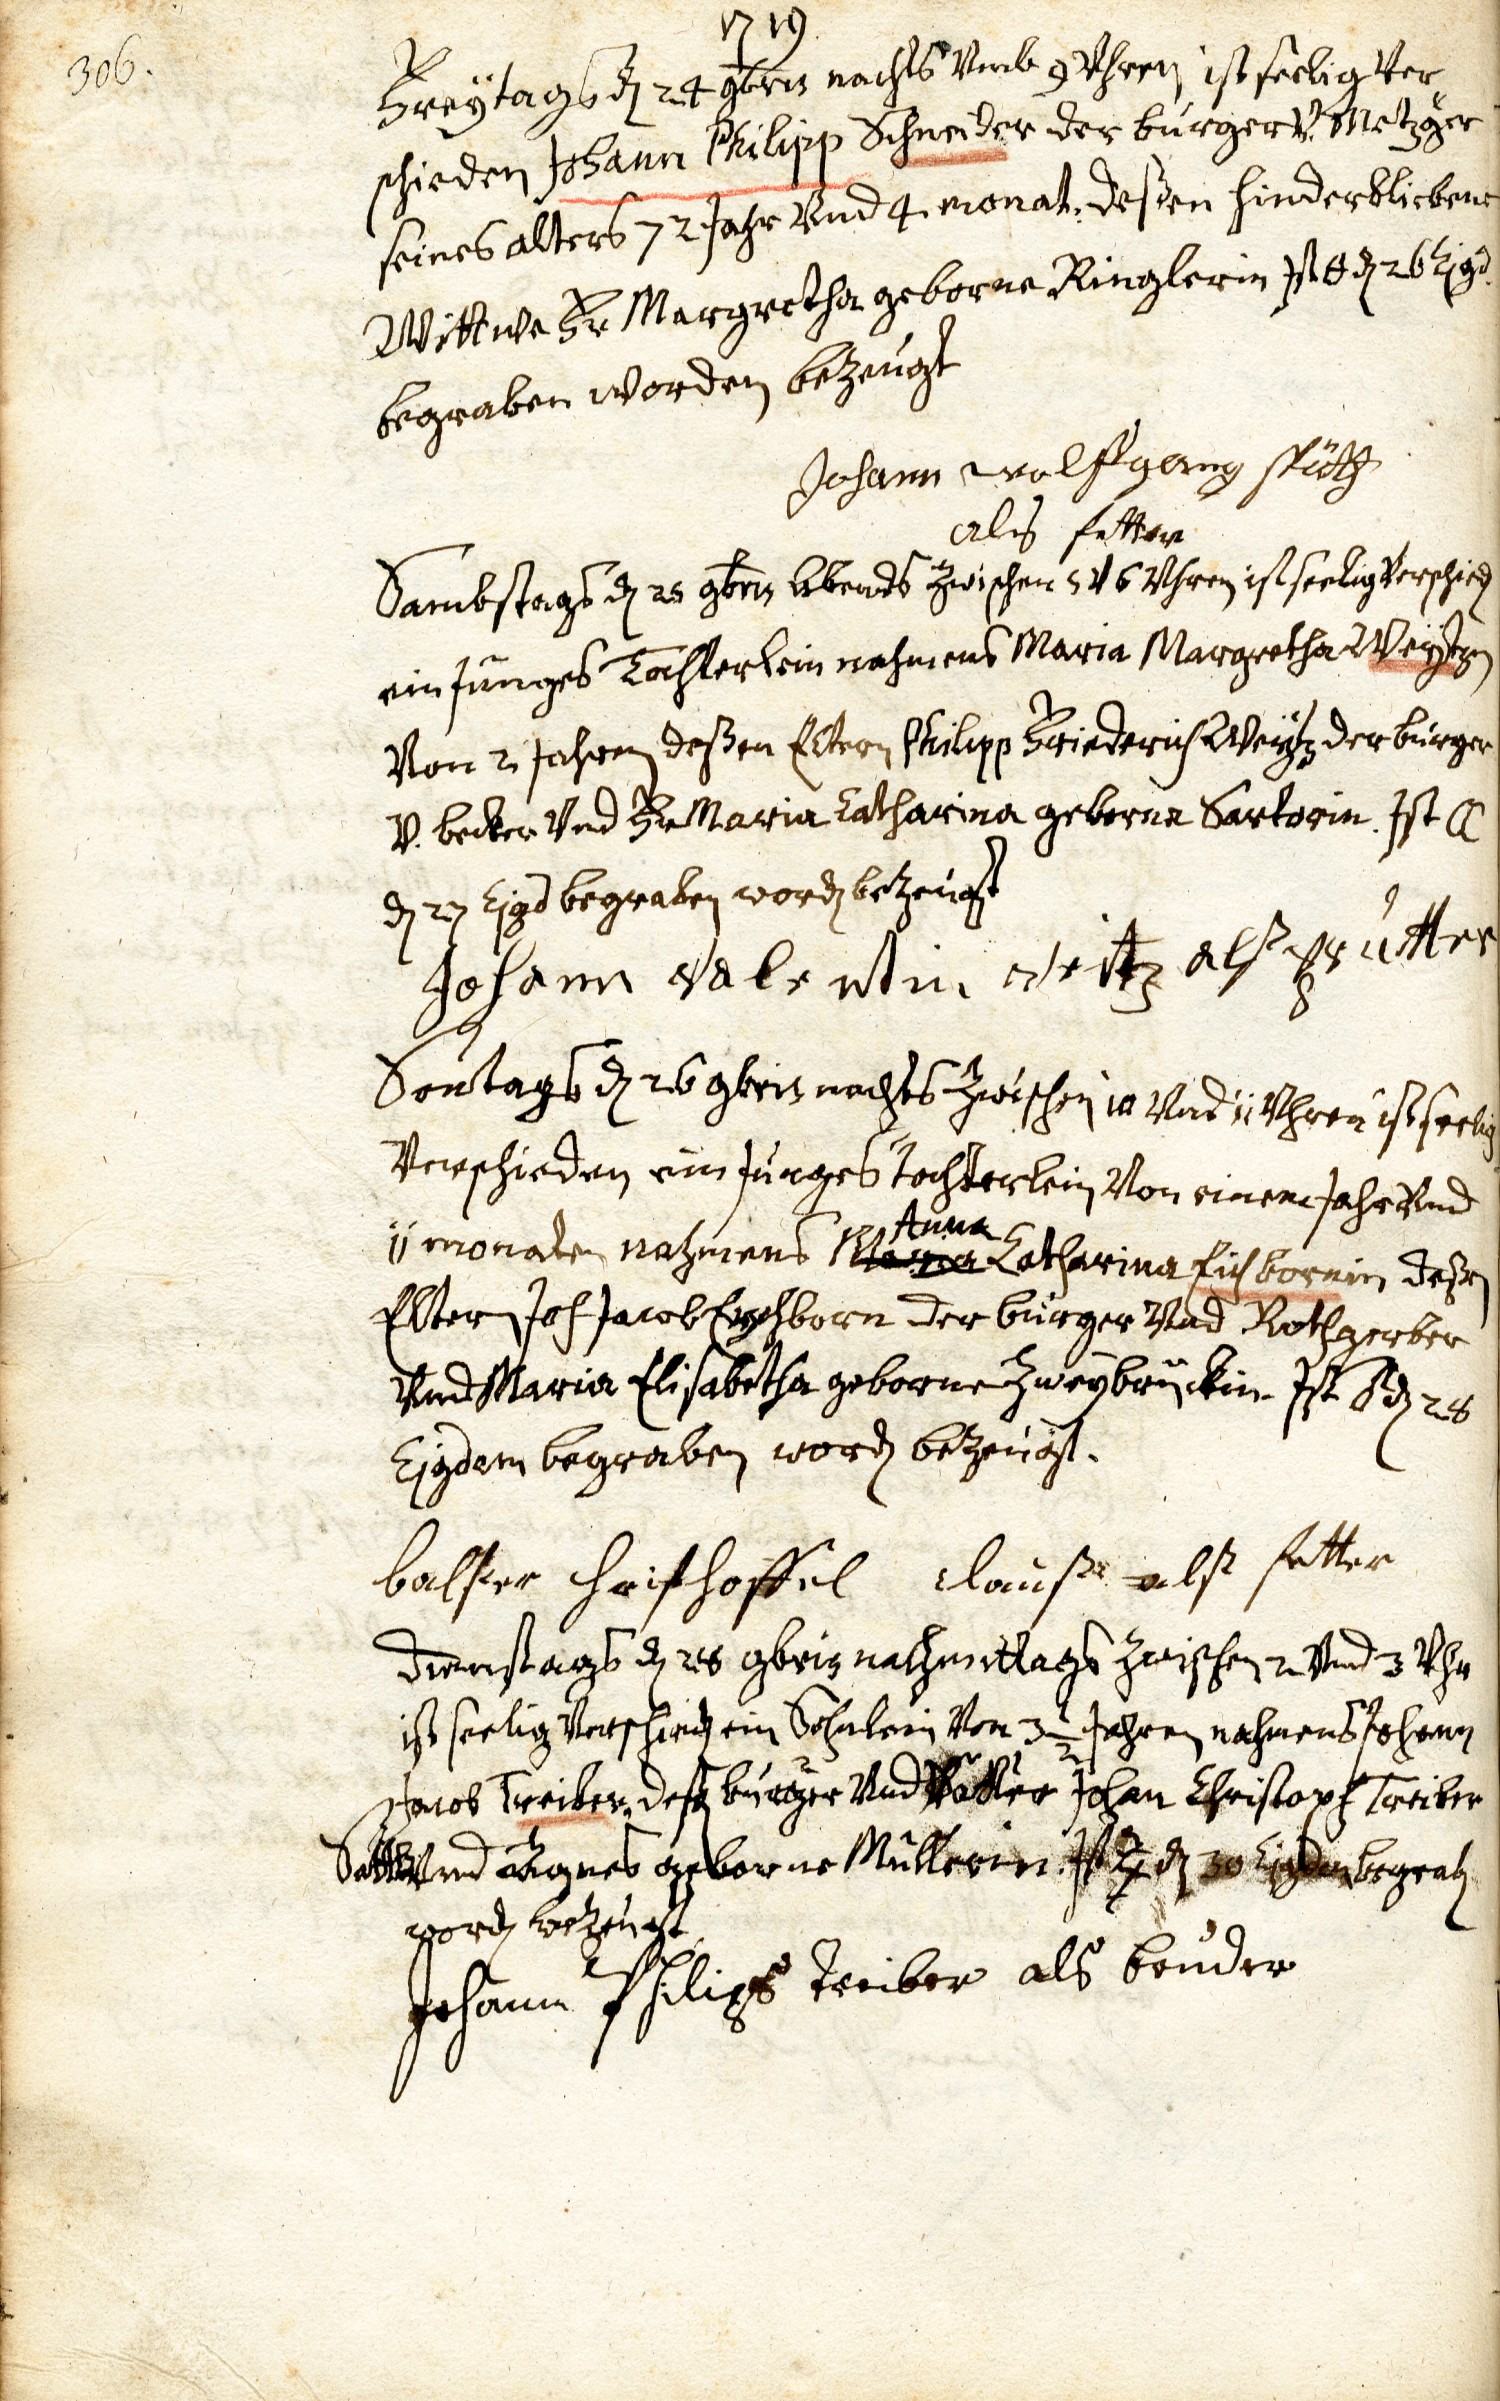 306.
1719.
Freÿtags dĸ 24 9bris nachts Vmb 9 Vhren ist seelig Ver
schieden Johann Philipp Schneider der burger V. Metzger
seines alters 72 Jahr Vnd 4 monat. deßen hinderbliebene
Wittwe Fr Margretha geborne Ringlerin Ist den 26 Ejgd.
begraben worden bezeugt
Johann wolffgang
als fetter
Sambstags den 25 9bris Abends zwischen 5 V 6 Vhren ist seelig Verschied
ein Junges Tochterlein nahmens Maria Margretha Weÿtzin
Von 2 Jahren deßen Eltern Philipp Friederich Weÿtz der burger
V. becker Vnd Fr Maria Catharina geborne Sartorin. Ist ☾
den 27 Ejgd begraben word bezeugt
Johann valentin weitz alß
Sontags den 26 9bris nachts zwischen 10 Vnd 11 Vhren ist seelig
Verschieden ein Junges Tochterlein Von einem Jahr Vnd
11 monaten nahmens Maria Anna Catharina Eichbornin deßen
Eltern Joh Jacob Eychborn der burger Vnd Rothgerber
Vnd Maria Elisabetha geborne Zweÿbrückin. Ist den 28
Ejgdem begraben word bezeugt.
balser Christhoffel clauß alß fetter
Dienstags den 28 9bris nachmittags zwischen 2 Vnd 3 Vhr
ist seelig Verschied ein Sohnlein Von 3 1/2 Jahren nahmens Johann
Jacob Treiber, deß burger Vnd Johan Christoph Treiber
Sattler Vnd Agnes geborne Müllerin. Ist ♃ den 30 Ejgdem begrab
word bezeugt
Johann Philips Treiber als bruder